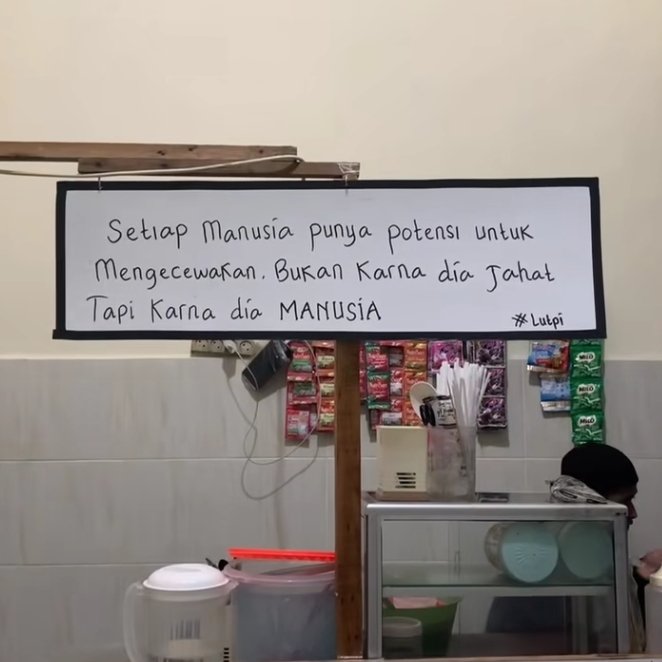 Setiap Manusia punya potensi untuk
Mengecewakan. Bukan Karna dia Jahat
Tapi Karna dia MANUSIA
#Lutpi
MILO
MILO
MILO